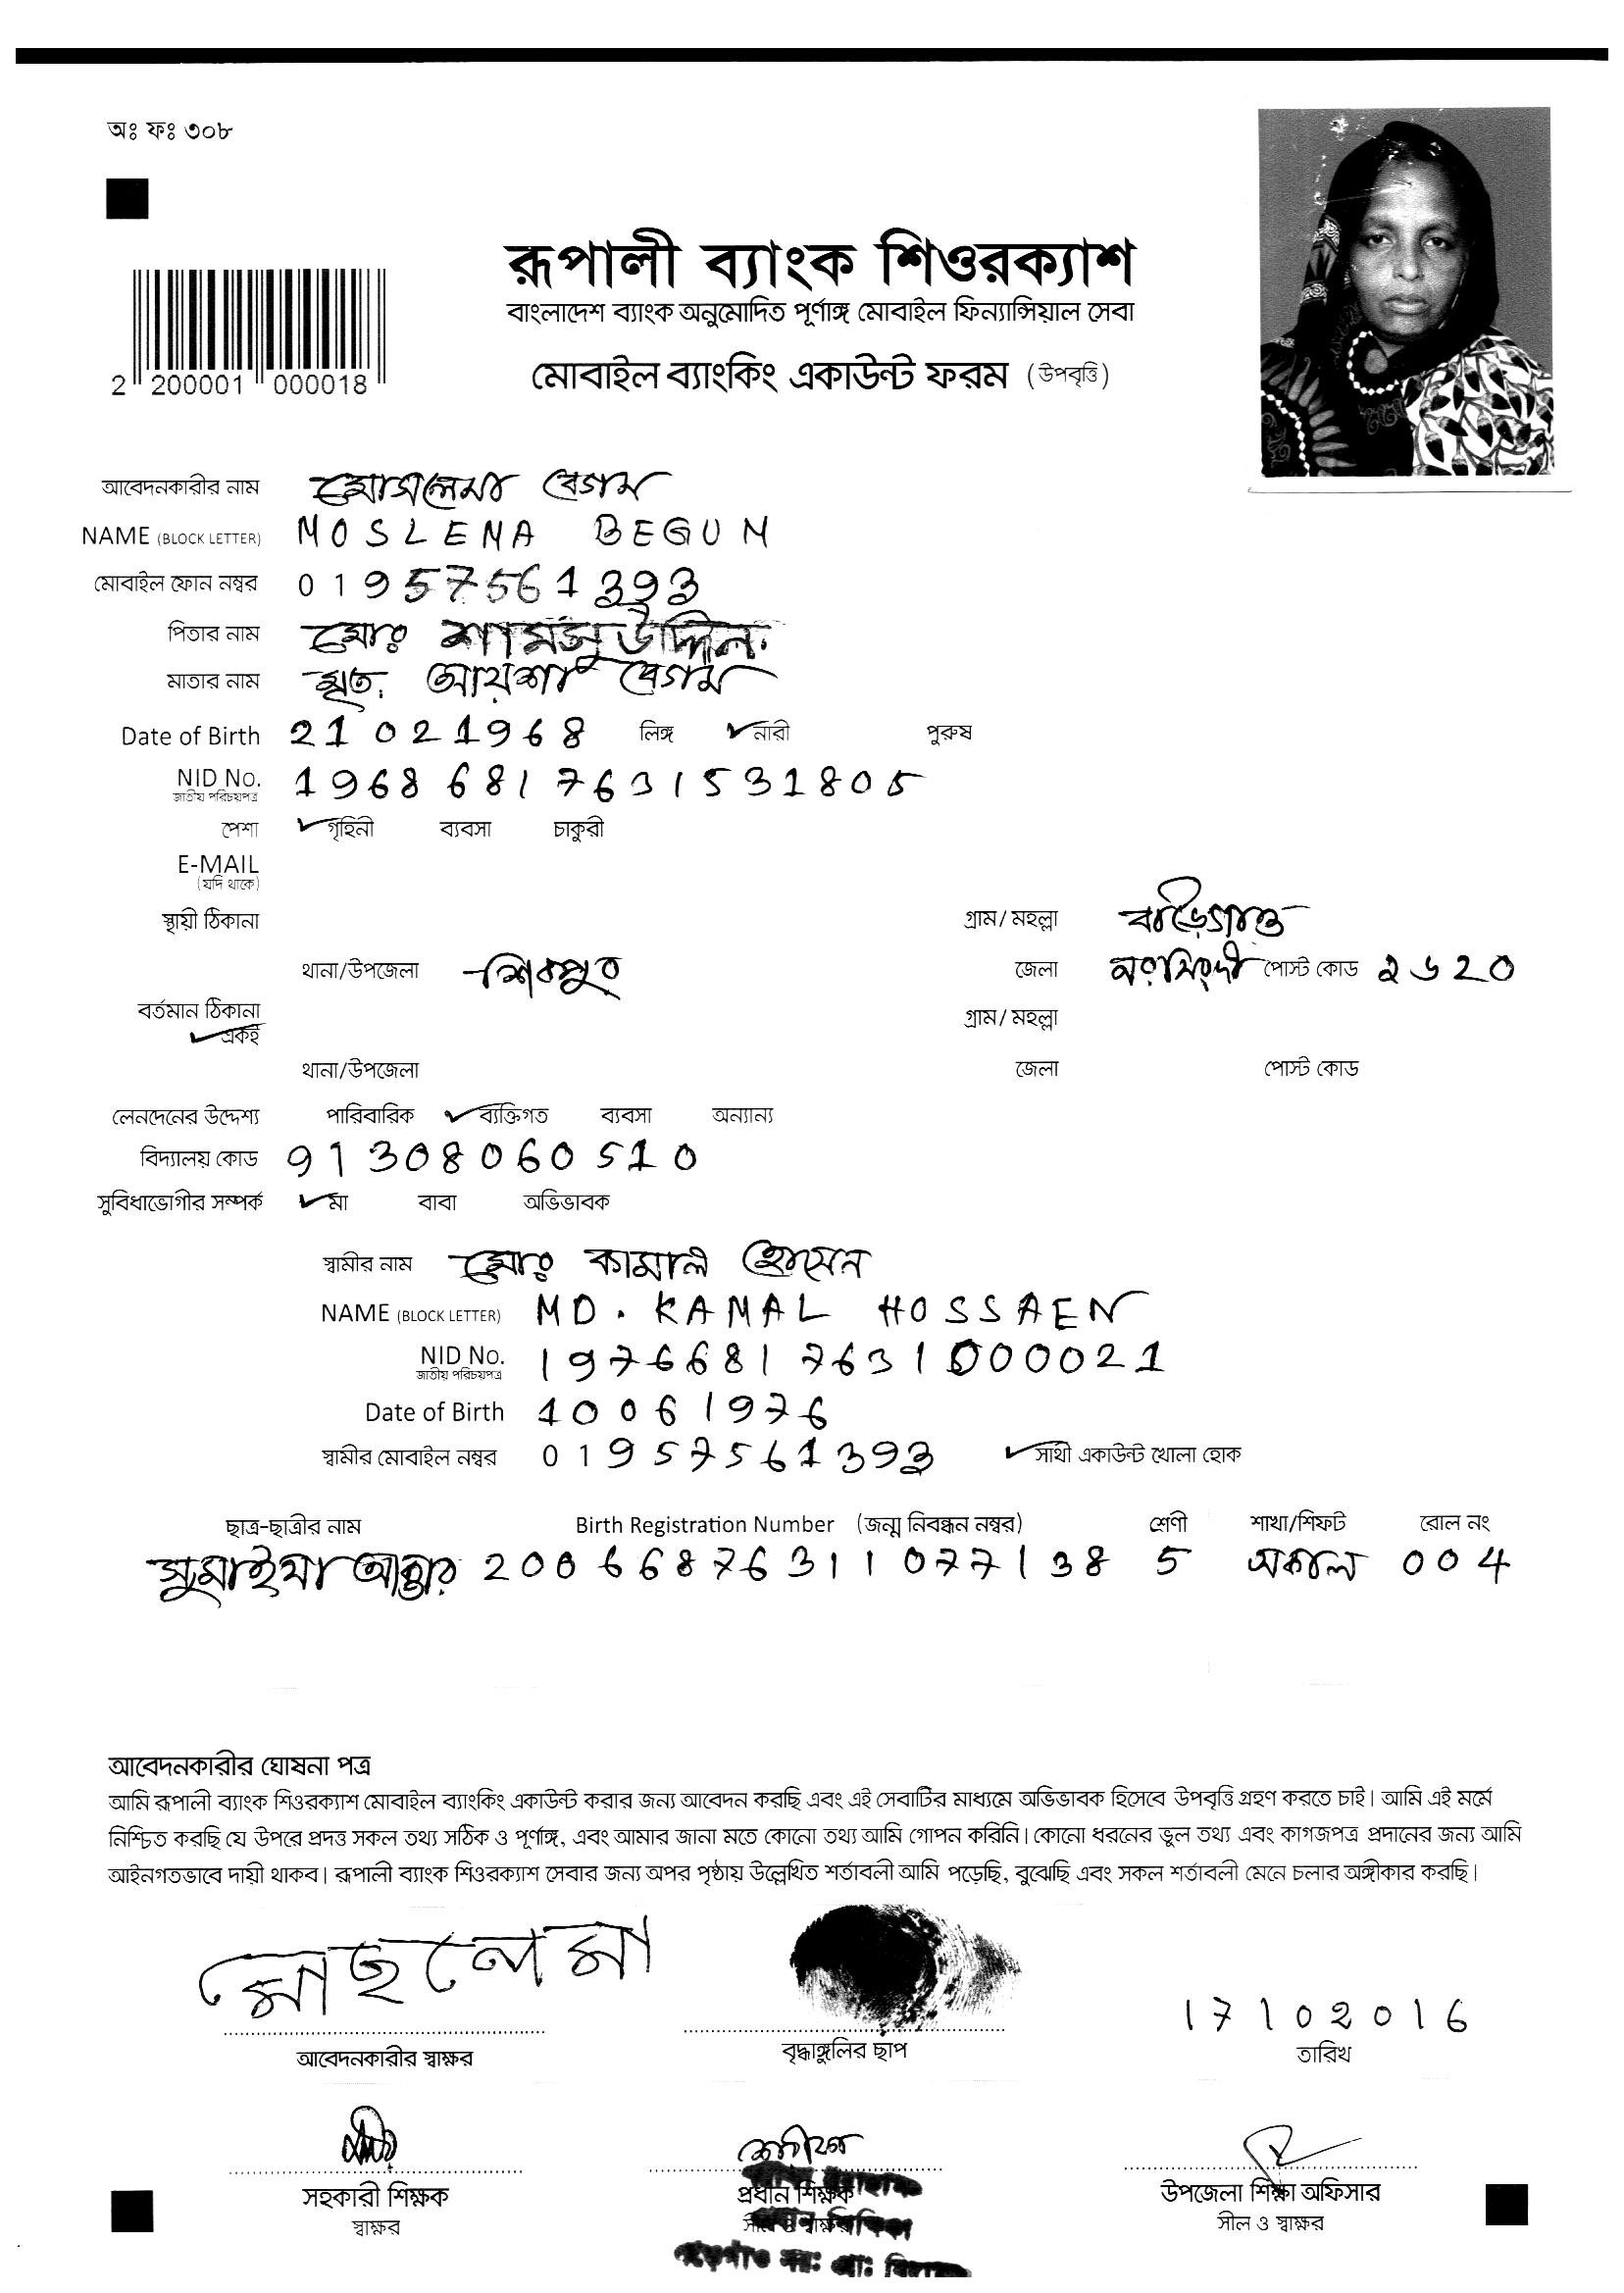 অঃ ফঃ ৩০৮
রূপালী ব্যাংক শিওরক্যাশ
বাংলাদেশ ব্যাংক অনুমোদিত পূর্ণাঙ্গ মোবাইল ফিন্যান্সিয়াল সেবা
2 200001 000018
মোবাইল ব্যাংকিং একাউন্ট ফরম (উপবৃত্তি)
আবেদনকারীর নাম মোসলেমা বেগম
NAME (BLOCK LETTER) MOSLEMA BEGUM
মোবাইল ফোন নম্বর 01957561393
পিতার নাম মোঃ শামসুউদ্দিন
মাতার নাম মৃত. আয়শা বেগম
Date of Birth 21 02 1968 লিঙ্গ ✓নারী পুরুষ
NID No. 19686817631531805
জাতীয় পরিচয়পত্র
পেশা ✓গৃহিনী ব্যবসা চাকুরী
E-MAIL
(যদি থাকে)
স্থায়ী ঠিকানা গ্রাম/ মহল্লা
থানা/উপজেলা শিবপুর জেলা নরসিংদী পোস্ট কোড ২৬20
বর্তমান ঠিকানা গ্রাম/ মহল্লা
✓একই
থানা/উপজেলা জেলা পোস্ট কোড
লেনদেনের উদ্দেশ্য পারিবারিক ✓ব্যক্তিগত ব্যবসা অন্যান্য
বিদ্যালয় কোড 91308060510
সুবিধাভোগীর সম্পর্ক ✓মা বাবা অভিভাবক
স্বামীর নাম মোঃ কামাল হোসেন
NAME (BLOCK LETTER) MD. KAMAL HOSSAEN
NID No. 19766817631000021
জাতীয় পরিচয়পত্র
Date of Birth 10 06 1976
স্বামীর মোবাইল নম্বর 01957561393 ✓সাথী একাউন্ট খোলা হোক
ছাত্র-ছাত্রীর নাম Birth Registration Number (জন্ম নিবন্ধন নম্বর) শ্রেণী শাখা/শিফট রোল নং
সুমাইয়া আক্তার 20066876311077138 5 সকাল 004
আবেদনকারীর ঘোষনা পত্র
আমি রূপালী ব্যাংক শিওরক্যাশ মোবাইল ব্যাংকিং একাউন্ট করার জন্য আবেদন করছি এবং এই সেবাটির মাধ্যমে অভিভাবক হিসেবে উপবৃত্তি গ্রহণ করতে চাই। আমি এই মর্মে
নিশ্চিত করছি যে উপরে প্রদত্ত সকল তথ্য সঠিক ও পূর্ণাঙ্গ, এবং আমার জানা মতে কোনো তথ্য আমি গোপন করিনি। কোনো ধরনের ভুল তথ্য এবং কাগজপত্র প্রদানের জন্য আমি
আইনগতভাবে দায়ী থাকব। রূপালী ব্যাংক শিওরক্যাশ সেবার জন্য অপর পৃষ্ঠায় উল্লেখিত শর্তাবলী আমি পড়েছি, বুঝেছি এবং সকল শর্তাবলী মেনে চলার অঙ্গীকার করছি।
মোছলেমা
17 10 2016
আবেদনকারীর স্বাক্ষর বৃদ্ধাঙ্গুলির ছাপ তারিখ
সহকারী শিক্ষক প্রধান শিক্ষক উপজেলা শিক্ষা অফিসার
স্বাক্ষর সীল ও স্বাক্ষর সীল ও স্বাক্ষর